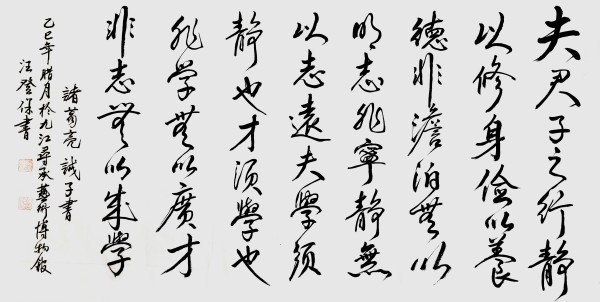 夫君子之行静
以修身儉以養
德非澹泊無以
明志非寧静無
以志遠夫學須
静也才須學也
非學無以廣才
非志無以成學
諸葛亮誡子書
乙巳年腊月於九江尋承藝術博物館
汪登保書